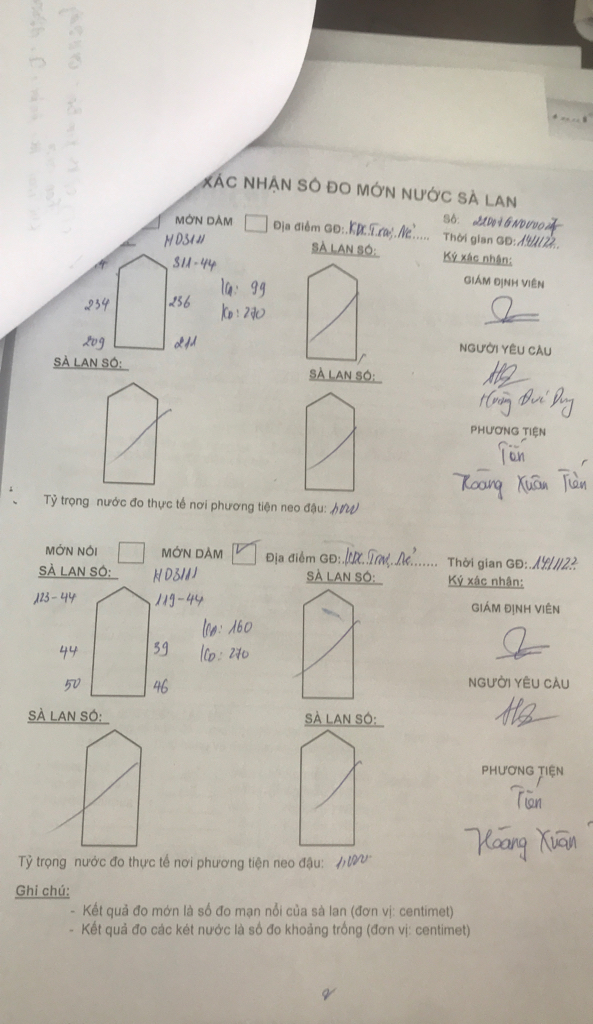 XÁC NHẬN SỐ ĐO MỚN NƯỚC SÀ LAN
MỚN DẰM Địa điểm GĐ: Số:
Thời gian GĐ: 14/1/22
HD3111 SÀ LAN SỐ: Ký xác nhận:
311-44
GIÁM ĐỊNH VIÊN
234 236
209 211
: 99
: 270
NGƯỜI YÊU CẦU
SÀ LAN SỐ: SÀ LAN SỐ:
PHƯƠNG TIỆN
Tiến
Hoàng Xuân Tiến
Tỷ trọng nước đo thực tế nơi phương tiện neo đậu:
MỚN NỔI MỚN DẰM Địa điểm GĐ: Thời gian GĐ: 14/1/22
SÀ LAN SỐ: HD3111 SÀ LAN SỐ: Ký xác nhận:
123-44 119-44
GIÁM ĐỊNH VIÊN
44 39
50 46
: 160
: 270
NGƯỜI YÊU CẦU
SÀ LAN SỐ: SÀ LAN SỐ:
PHƯƠNG TIỆN
Tiến
Hoàng Xuân
Tỷ trọng nước đo thực tế nơi phương tiện neo đậu:
Ghi chú:
- Kết quả đo mớn là số đo mạn nổi của sà lan (đơn vị: centimet)
- Kết quả đo các két nước là số đo khoảng trống (đơn vị: centimet)